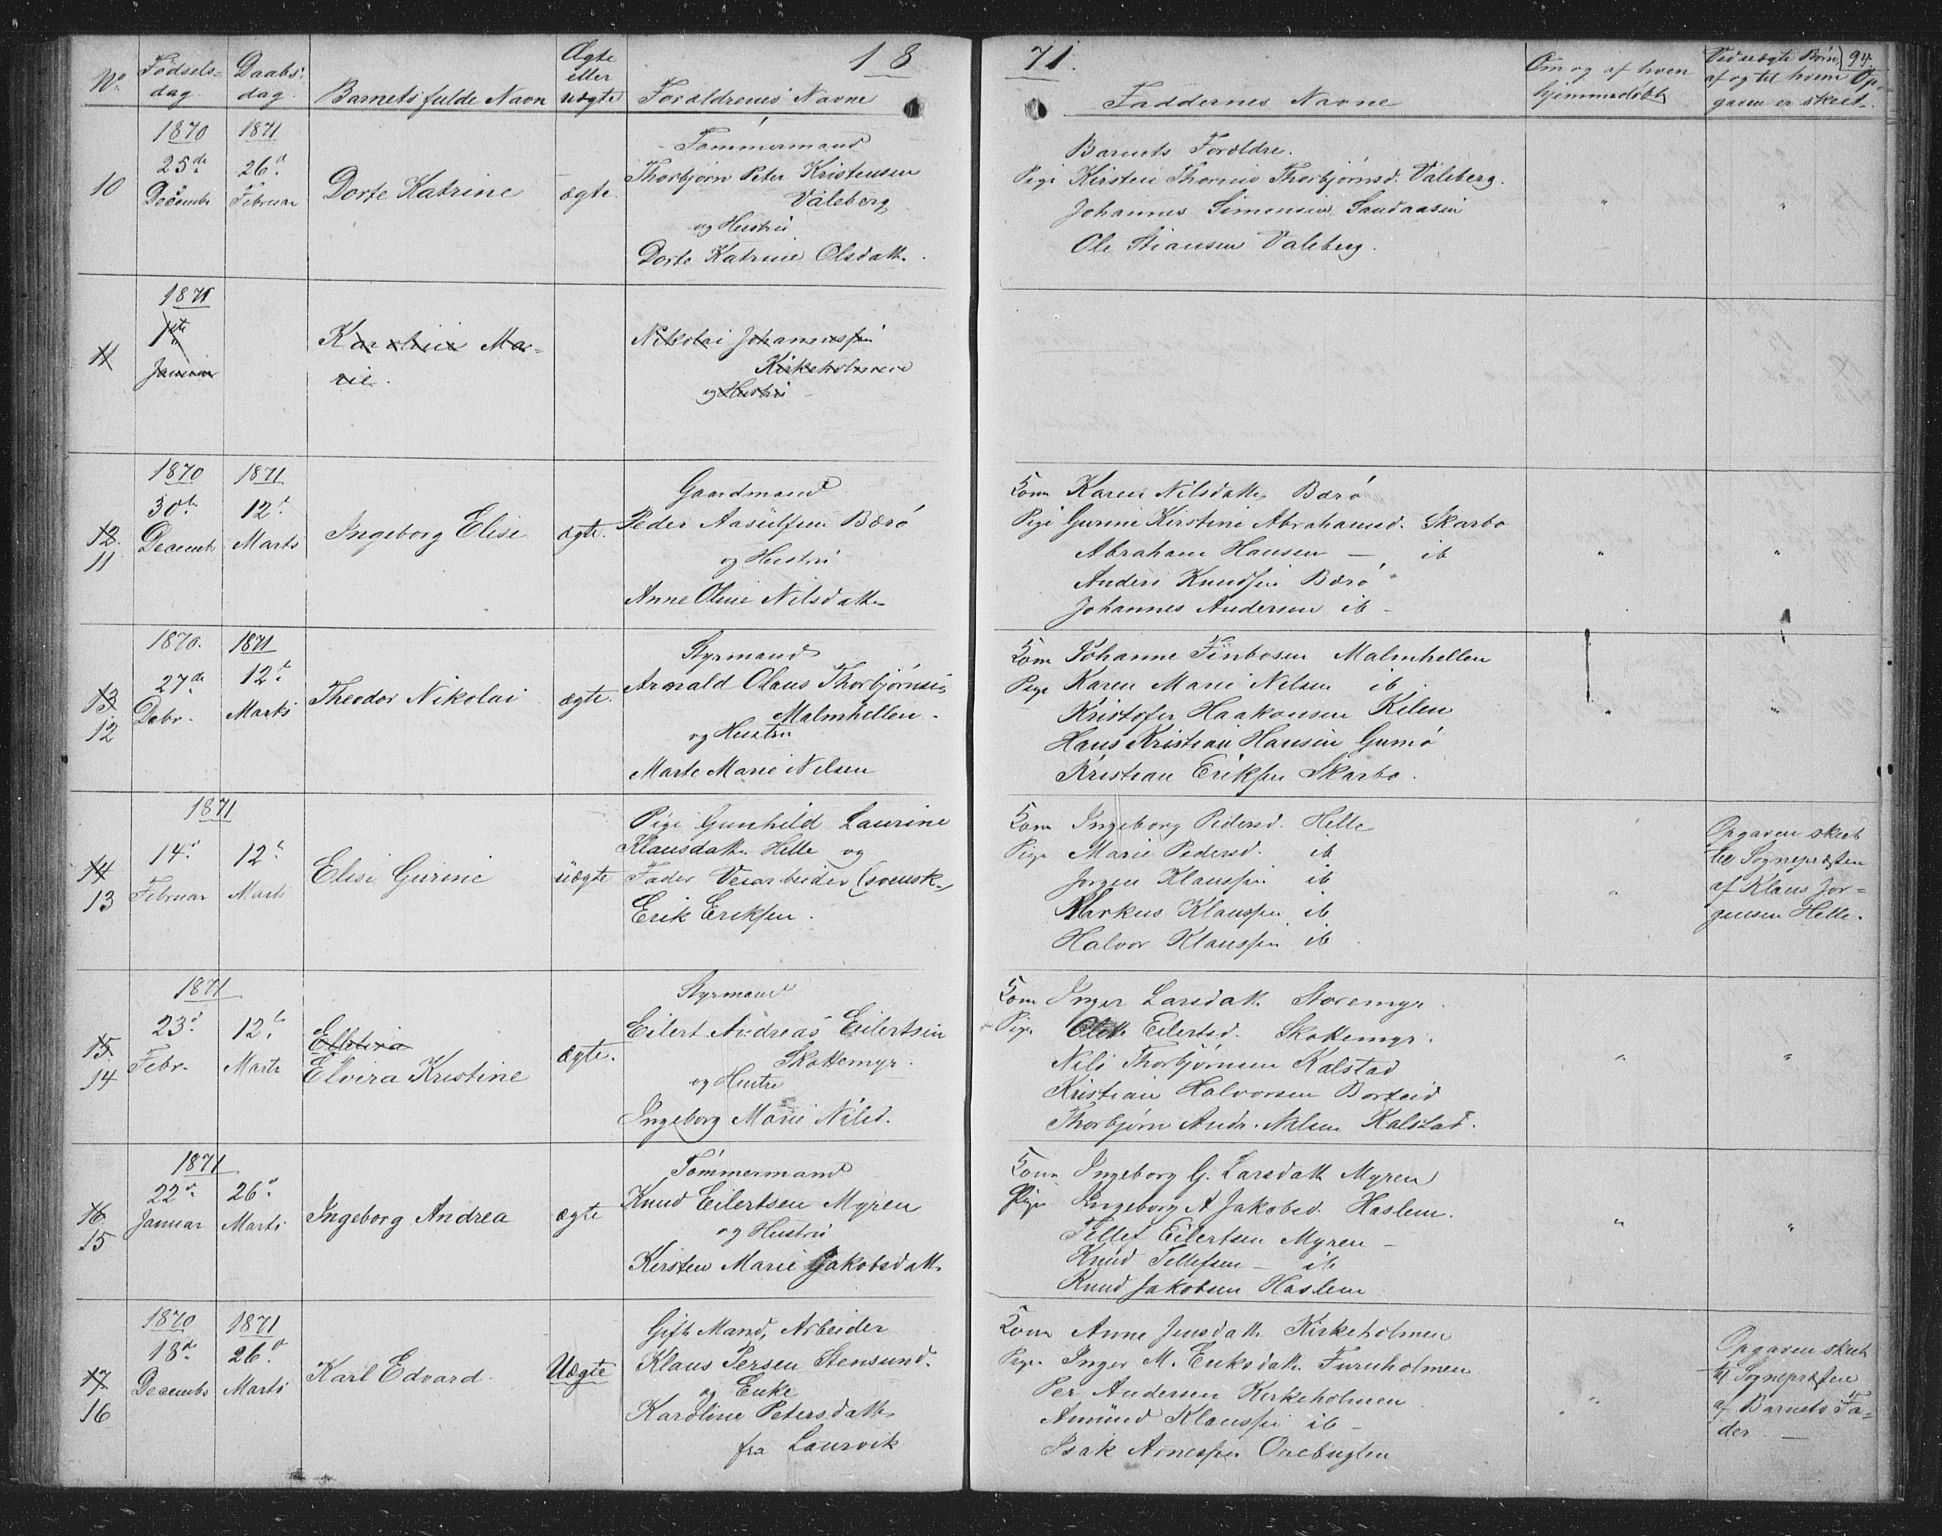 18 71.
94
No Fødsels- Daabs- Barnets fulde Navn Ægte Forældrenes Navne
dag dag eller
uægte
Faddernes Navne
Om og af hvem
hjemmedøbt
Ved uægte Børn
af og til hvem Op-
gaven er skeet.
10
1870
25de
Decembr
1871
26d
Februar
Dorte Katrine
ægte.
Tømmermand
Thorbjørn Peter Kristensen
Valeberg
og Hustru
Dorte Katrine Olsdattr.
Barnets Forældre.
Pige Kirsten Thorine Thorbjørnsd. Valeberg.
Johannes Simensen Sandaasen
Ole Stiansen Valeberg.
11
1871
1ste
Januar
Karoline Ma-
rie.
Nikolai Johannessen
Kirkeholmene
og Hustru
12.
11
1870
30te
Decembr
1871
12te
Marts
Ingeborg Elise
ægte.
Gaardmand
Peder Aasulfsen Bærø
og Hustru
Anne Oline Nilsdattr
Kone Karen Nilsdattr Bærø
Pige Gurine Kirstine Abrahamsd. Skarbo
Abraham Hansen — ib
Anders Knudsen Bærø
Johannes Andersen ib -
13
12
1870.
27de
Debr.
1871
12te
Marts
Theodor Nikolai
ægte.
Styrmand
Arnald Olaus Thorbjørnsen
Malmhellen.
og Hustru
Marte Marie Nilsen
Kone Johanne Finbosen Malmhellen
Pige Karen Marie Nilsen ib
Kristofer Haakonsen Kilen
Hans Kristian Hansen Gumø
Kristian Eriksen Skarbo.
14
13
1871
14d
Februar
12te
Marts
Elise Gurine
uægte
Pige Gunhild Laurine
Klausdattr Helle og
Fader Veiarbeider (svensk)
Erik Eriksen.
Kone Ingeborg Pedersd. Helle
Pige Marie Pedersd. ib
Jørgen Klaussen ib
Markus Klaussen ib
Halvor Klaussen ib
Opgaven skeet
til Sognepræsten
af Klaus Jør-
gensen Helle.
15.
14
1871
23d
Febr.
12te
Marts
Elvira Kristine
ægte.
Styrmand
Eilert Andreas Eilertsen
Skottemyr.
og Hustru
Ingeborg Marie Nilsd.
Kone Inger Larsdattr Storemyr
Pige Eilertsd. Skottemyr.
Nils Thorbjørnsen Kalstad
Kristian Halvorsen Borteid
Thorbjørn Andr. Nilsen Kalstad.
16.
15
1871
22d
Januar
26d
Marts
Ingeborg Andrea
ægte
Tømmermand
Knud Eilertsen Myren
og Hustru
Kirsten Marie Jakobsdattr
Kone Ingeborg G. Larsdattr Myren
Pige Ingeborg A Jakobsd. Haslem.
Tellef Eilertsen Myren -
Knud Tellefsen - ib
Knud Jakobsen Haslem
17
16
1870
18de
Decembr
1871
26d
Marts
Karl Edvard.
Uægte
Gift Mand, Arbeider
Klaus Persen Stensund.
og Enke
Karoline Petersdattr
fra Laurvik
Kone Anne Jensdattr Kirkeholmen
Pige Inger M. Eriksdattr Furuholmen
Per Andersen Kirkeholmen
Amund Klaussen ib -
Isak Arnessen Orebugten
Opgaven skeet
til Sognepræsten
af Barnets Fa-
der —